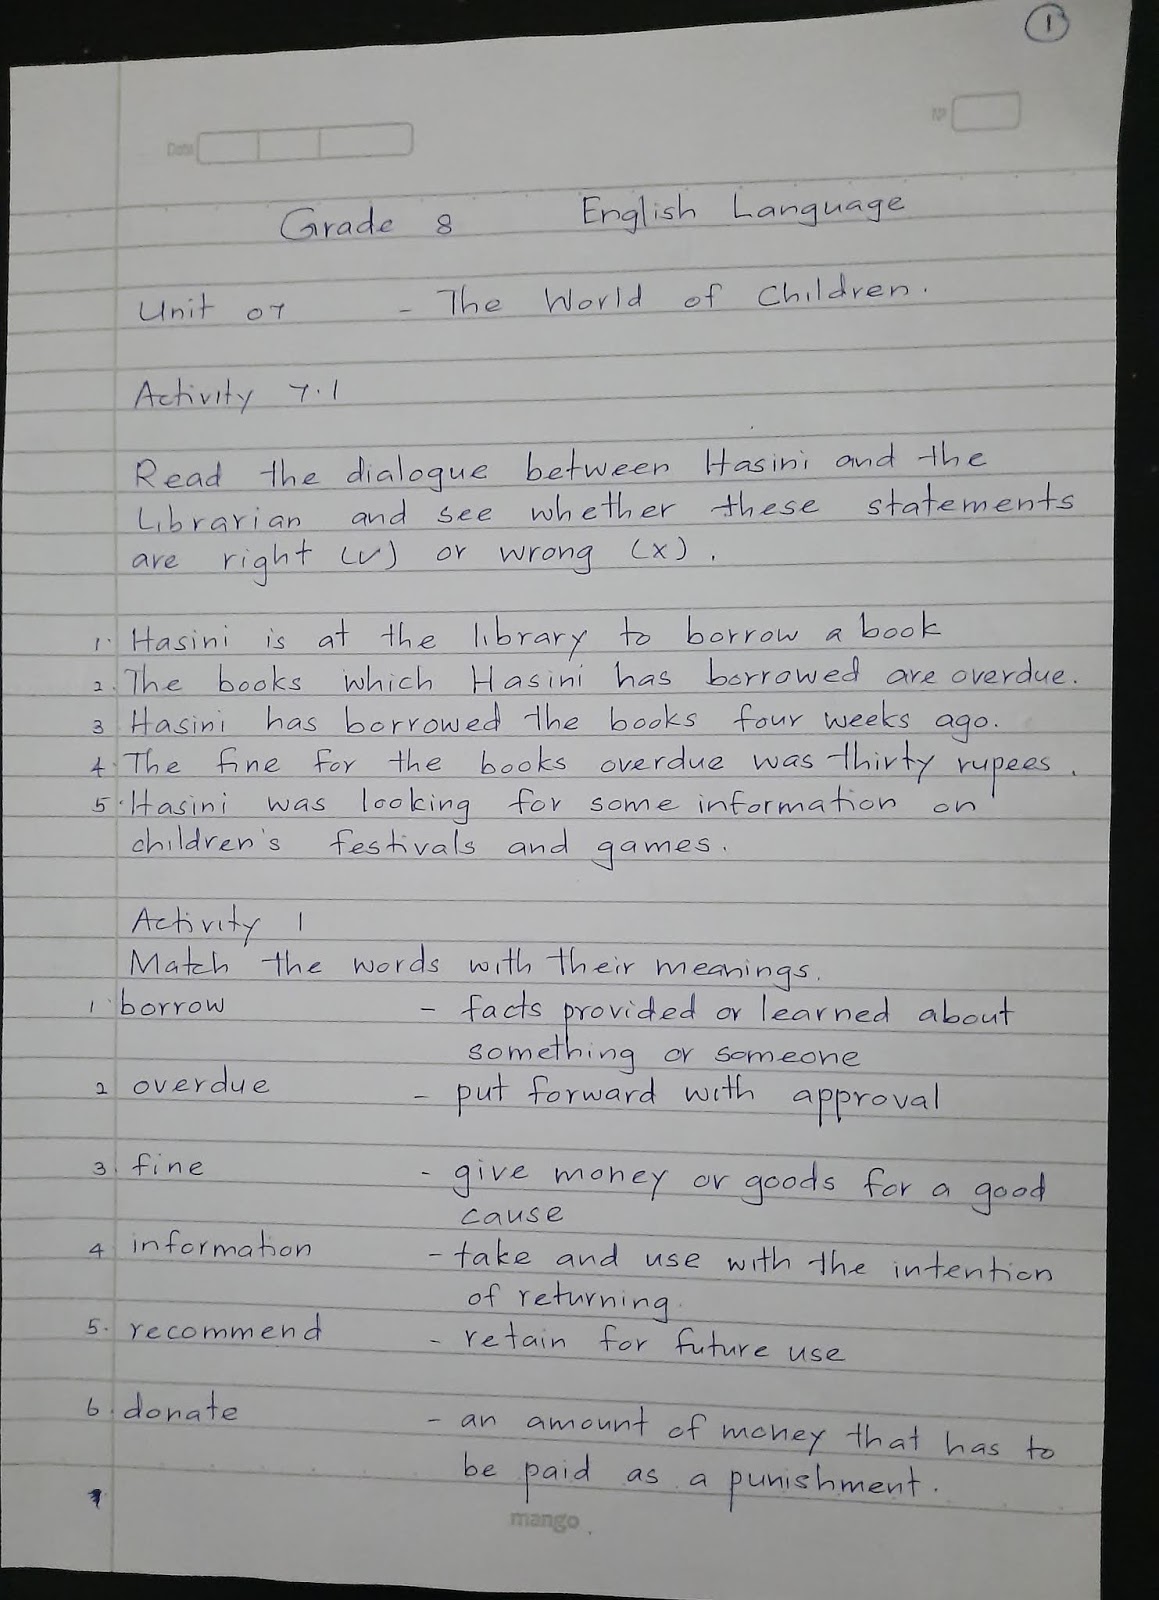 1
Date
No
Grade 8 English Language
Unit 07 - The World of Children.
Activity 7.1
Read the dialogue between Hasini and the
Librarian and see whether these statements
are right (✓) or wrong (x).
1. Hasini is at the library to borrow a book
2. The books which Hasini has borrowed are overdue.
3 Hasini has borrowed the books four weeks ago.
4. The fine for the books overdue was thirty rupees.
5. Hasini was looking for some information on
children's festivals and games.
Activity 1
Match the words with their meanings.
1. borrow - facts provided or learned about
something or someone
2 overdue - put forward with approval
3. fine - give money or goods for a good
cause
4 information - take and use with the intention
of returning.
5. recommend - retain for future use
6. donate - an amount of money that has to
be paid as a punishment.
mango